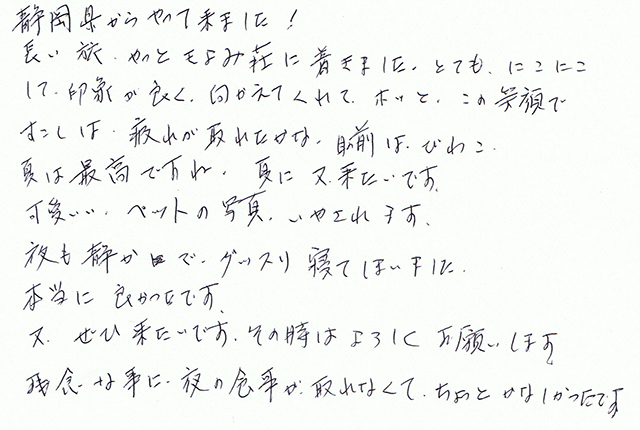 静岡県からやって来ました!
長い旅、やっともよみ荘に着きました。とても、にこにこ
して、印象が良く、向かえてくれて、ホッと、この笑顔で
すこしは、疲れが取れたかな、目前は、びわこ
夏は最高ですね、夏に又、来たいです。
可愛いい、ペットの写真、いやされます。
夜も静かで、グッスリ寝てしまいました。
本当に良かったです。
又、ぜひ来たいです。その時はよろしくお願いします
残念な事に、夜の食事が、取れなくて、ちょっとかなしかったです